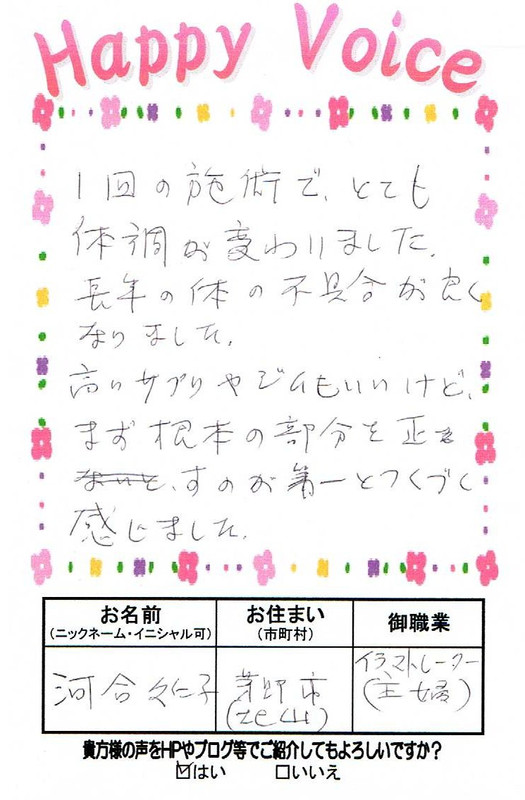 Happy Voice
1回の施術で、とても
体調が変わりました。
長年の体の不具合が良く
なりました。
高いサプリやジムもいいけど、
まず根本の部分を正
すのが第一とつくづく
感じました。
お名前
(ニックネーム・イニシャル可)
お住まい
(市町村)
御職業
河合 仁子
茅野市
イラストレーター
(主婦)
貴方様の声をHPやブログ等でご紹介してもよろしいですか?
☑はい □いいえ